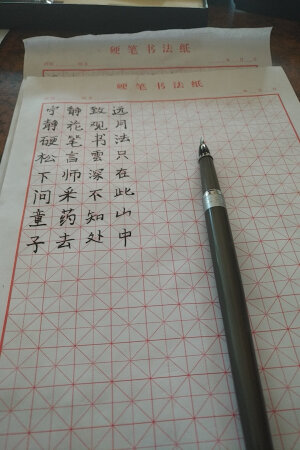 硬笔书法纸
硬笔书法纸
宁静致远
静花观月
硬笔书法
松下问童子
言师采药去
雲深不知处
只在此山中